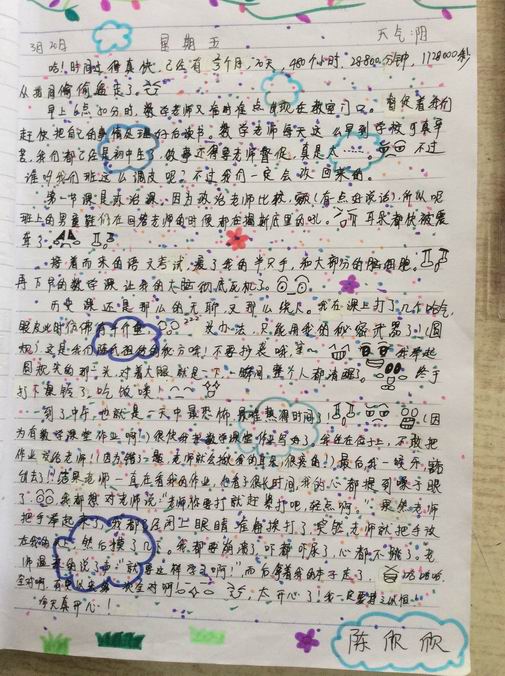 3月20日 星期五 天气:阴
哈!时间过得真快,已经有 个月,20天,480个小时,28800分钟,1728000秒
从指间偷偷溜走了。
早上6点30分时,数学老师又准时在点出现在教室门口。督促着我们
赶快把自己的事情处理好后读书。数学老师每天这么早到学校可真辛
苦,我们都已经是初中生了,做事还得要老师督促,真是太……。不过
谁叫我们班这么调皮呢?不过我们一定会改回来的。
第一节课是政治课,因为政治老师比较 (有点好说话),所以呢
班上的男童鞋们在回答老师的时候都在撕新底里的吼。耳朵都快被震
聋了
接着而来的语文考试,废了我的半只手,和大部分的脑细胞。
再下节的数学课,让我的大脑彻底死机了。
历史课还是那么的无聊,又那么绕人。我在课上打了几个哈气,
眼皮此时仿佛有千斤重 没办法,只能用我的秘密武器了!(圆
规)这是我们 哦!不要抄袭哦,笨~ 我举起
圆规尖的那一头,对着大腿就是一下。瞬间,整个人都清醒了。终于
打下课铃了,吃饭喽!
一到了中午,也就是一天中最恐怖,最难熬得时间了!(因
为有数学课堂作业啊!)很快我把数学课堂作业写为了,我坐在位子上,不敢把
作业交给老师!(因为错了一题,老师就会揪你的耳朵,很疼的!)最后我一咬牙,豁
出去了!结果老师一直在看我的作业,他看了很长时间,我的心都提到嗓子眼
了。我都想对老师说:“老师你要打就赶紧打吧,轻点啊。”果然老师
把手举起来了,我都已经闭上眼睛准备挨打了,突然老师就把手放
在我的 上,然后摸了几下。我都要崩溃了,吓都吓尿了,心都不跳了。老
师温柔的说了声“就要这样学习啊!”而后拿着我的本子走了。
全对啊, 全对啊! 太开心了!我一定要
今天真开心!
陈欣欣